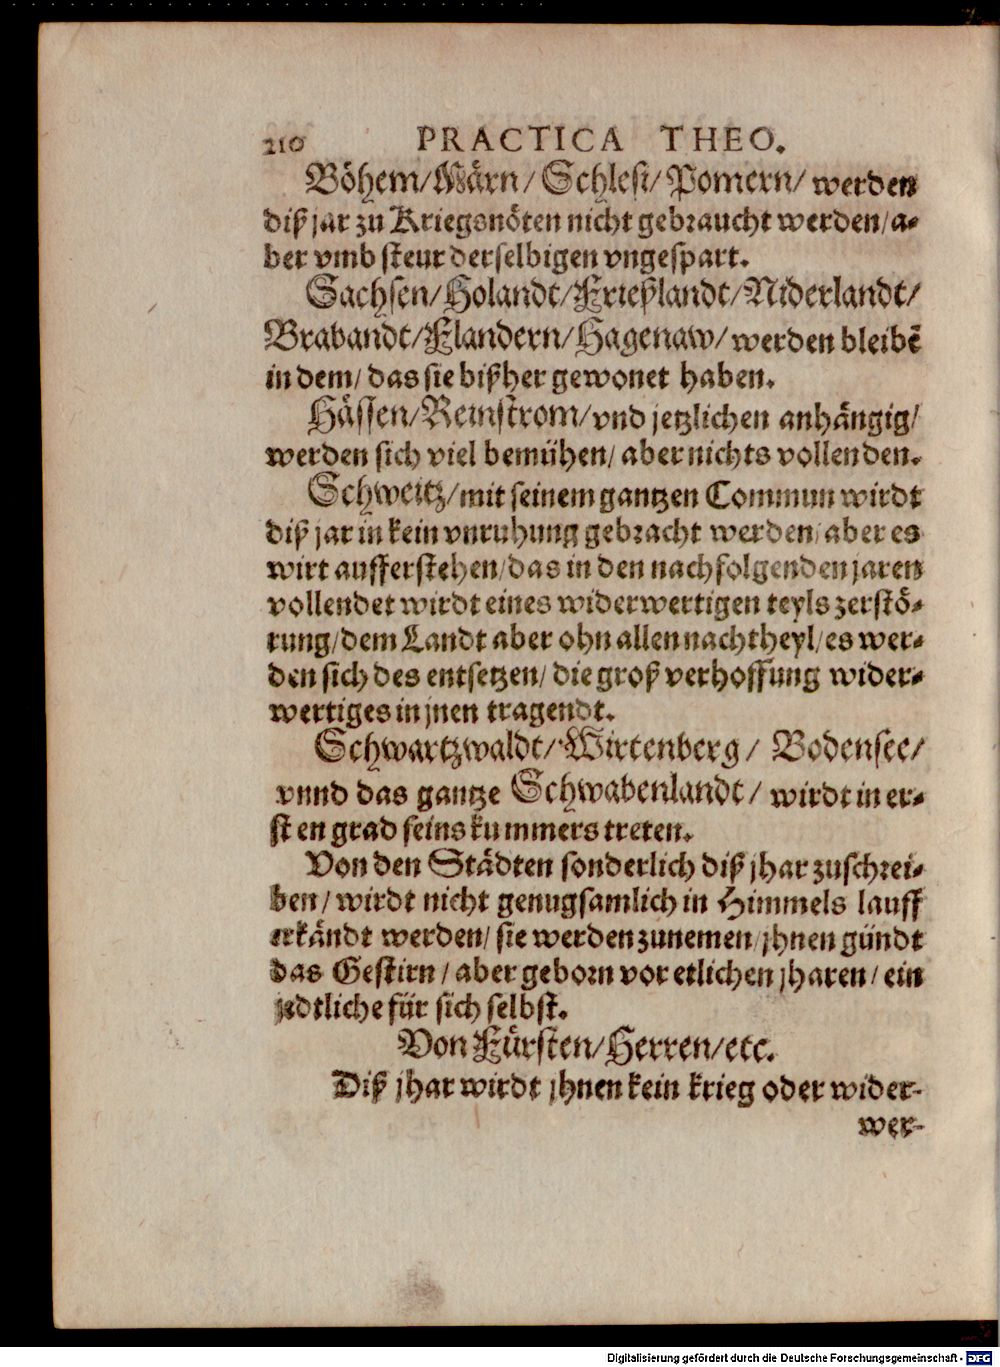 210 PRACTICA THEO.
Böhem/Märn/Schlesi/Pomern/werden
diß jar zu Kriegsnöten nicht gebraucht werden/a-
ber vmb steur derselbigen vngespart.
Sachsen/Holandt/Frießlandt/Niderlandt/
Brabandt/Flandern/Hagenaw/werden bleibē
in dem/das sie bißher gewonet haben.
Hässen/Reinstrom/vnd jetzlichen anhängig/
werden sich viel bemühen/aber nichts vollenden.
Schweitz/mit seinem gantzen Commun wirdt
diß jar in kein vnruhung gebracht werden/aber es
wirt aufferstehen/das in den nachfolgenden jaren
vollendet wirdt eines widerwertigen teyls zerstö-
rung/dem Landt aber ohn allen nachtheyl/es wer-
den sich des entsetzen/die groß verhoffung wider-
wertiges in jnen tragendt.
Schwartzwaldt/Wirtenberg/Bodensee/
vnnd das gantze Schwabenlandt/wirdt in er-
sten grad seins kummers treten.
Von den Städten sonderlich diß jhar zuschrei-
ben/wirdt nicht genugsamlich in Himmels lauff
erkändt werden/sie werden zunemen/jhnen gündt
das Gestirn/aber geborn vor etlichen jharen/ein
jedtliche für sich selbst.
Von Fürsten/Herren/etc.
Diß jhar wirdt jhnen kein krieg oder wider-
wer-
Digitalisierung gefördert durch die Deutsche Forschungsgemeinschaft - DFG